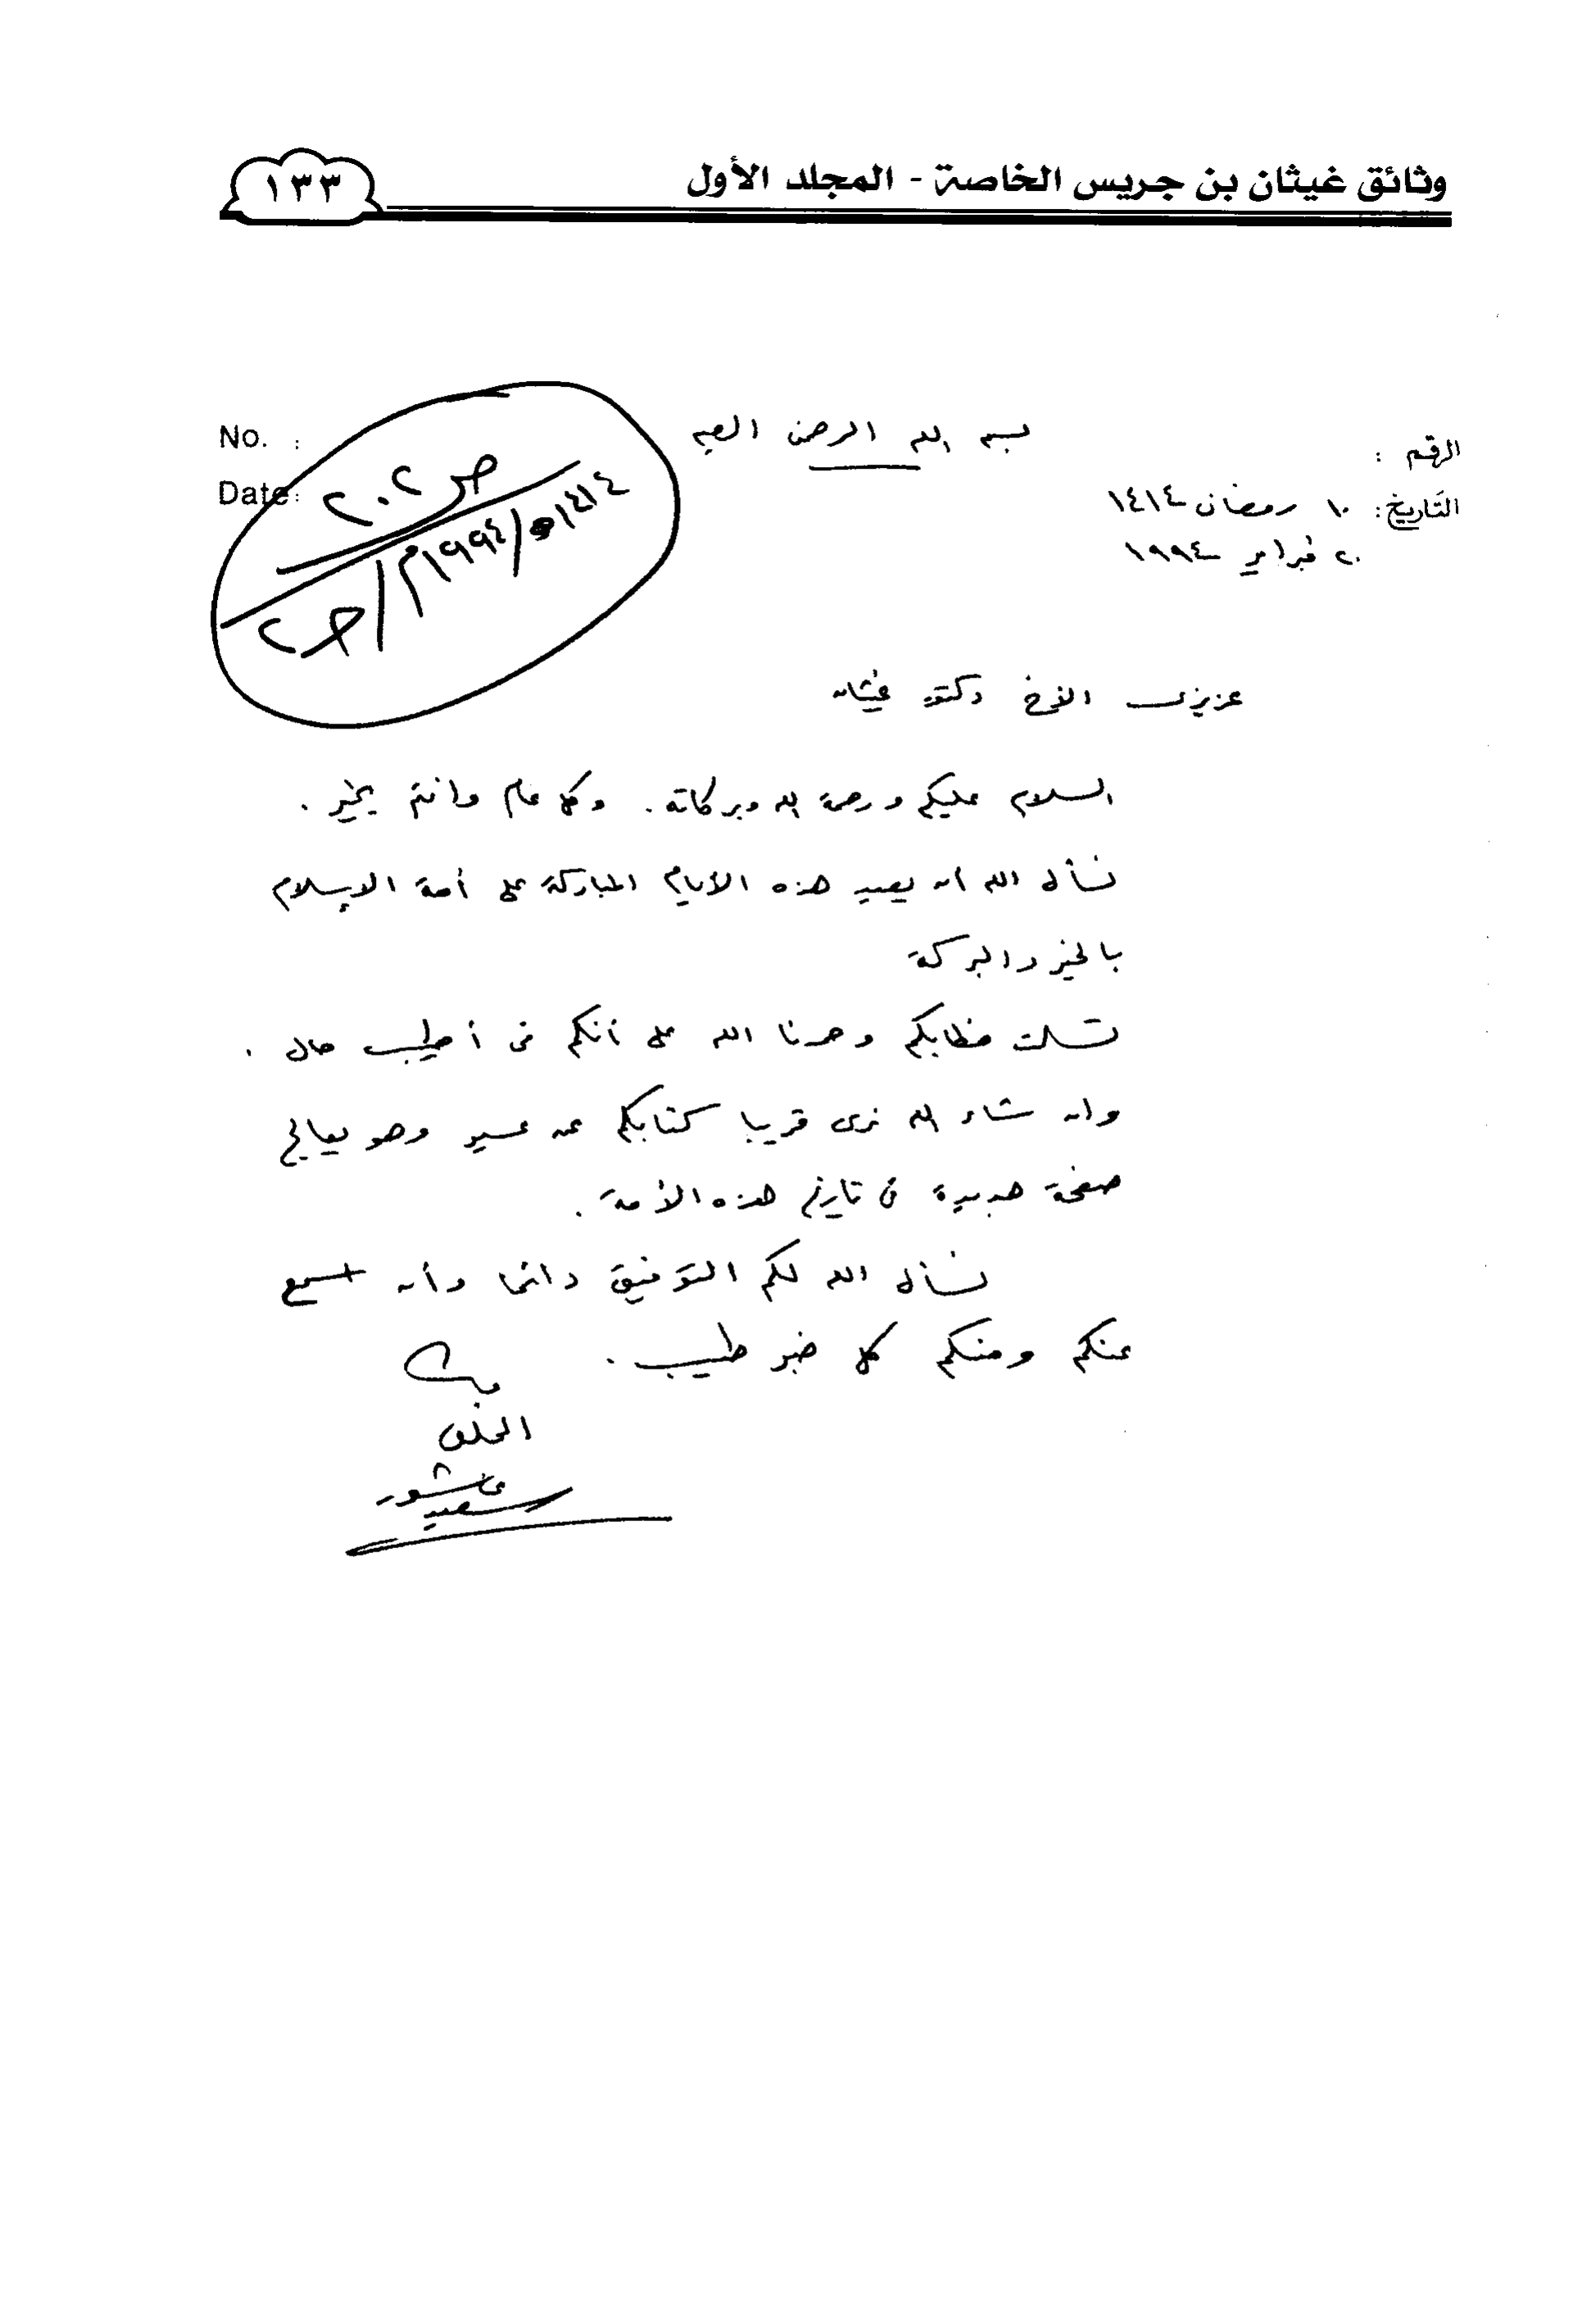 وثائق غيثان بن جريس الخاصة - المجلد الأول
١٣٣
بسم الله الرحمن الرحيم
الرقم :
No. :
التاريخ: ١٠ رمضان ١٤١٤
Date:
٢٠ فبراير ١٩٩٤
ص ٢٠٢
١٤١٤هـ/١٩٩٤م/حـ٢
عزيزى الأخ دكتور غيثان
السلام عليكم ورحمة الله وبركاته. وكل عام وانتم بخير .
نسأل الله أن يعيد هذه الأيام المباركة على أمة الإسلام
بالخير والبركة
تسلمت خطابكم وحمدنا الله على أنكم فى أطيب حال .
وان شاء الله نرى قريبا كتابكم عن عسير وهو يعالج
صفحة جديدة فى تاريخ هذه الأمة .
نسأل الله لكم التوفيق دائما وأن نسمع
عنكم ومنكم كل خير طيب .
المخلص
سعيد عاشور